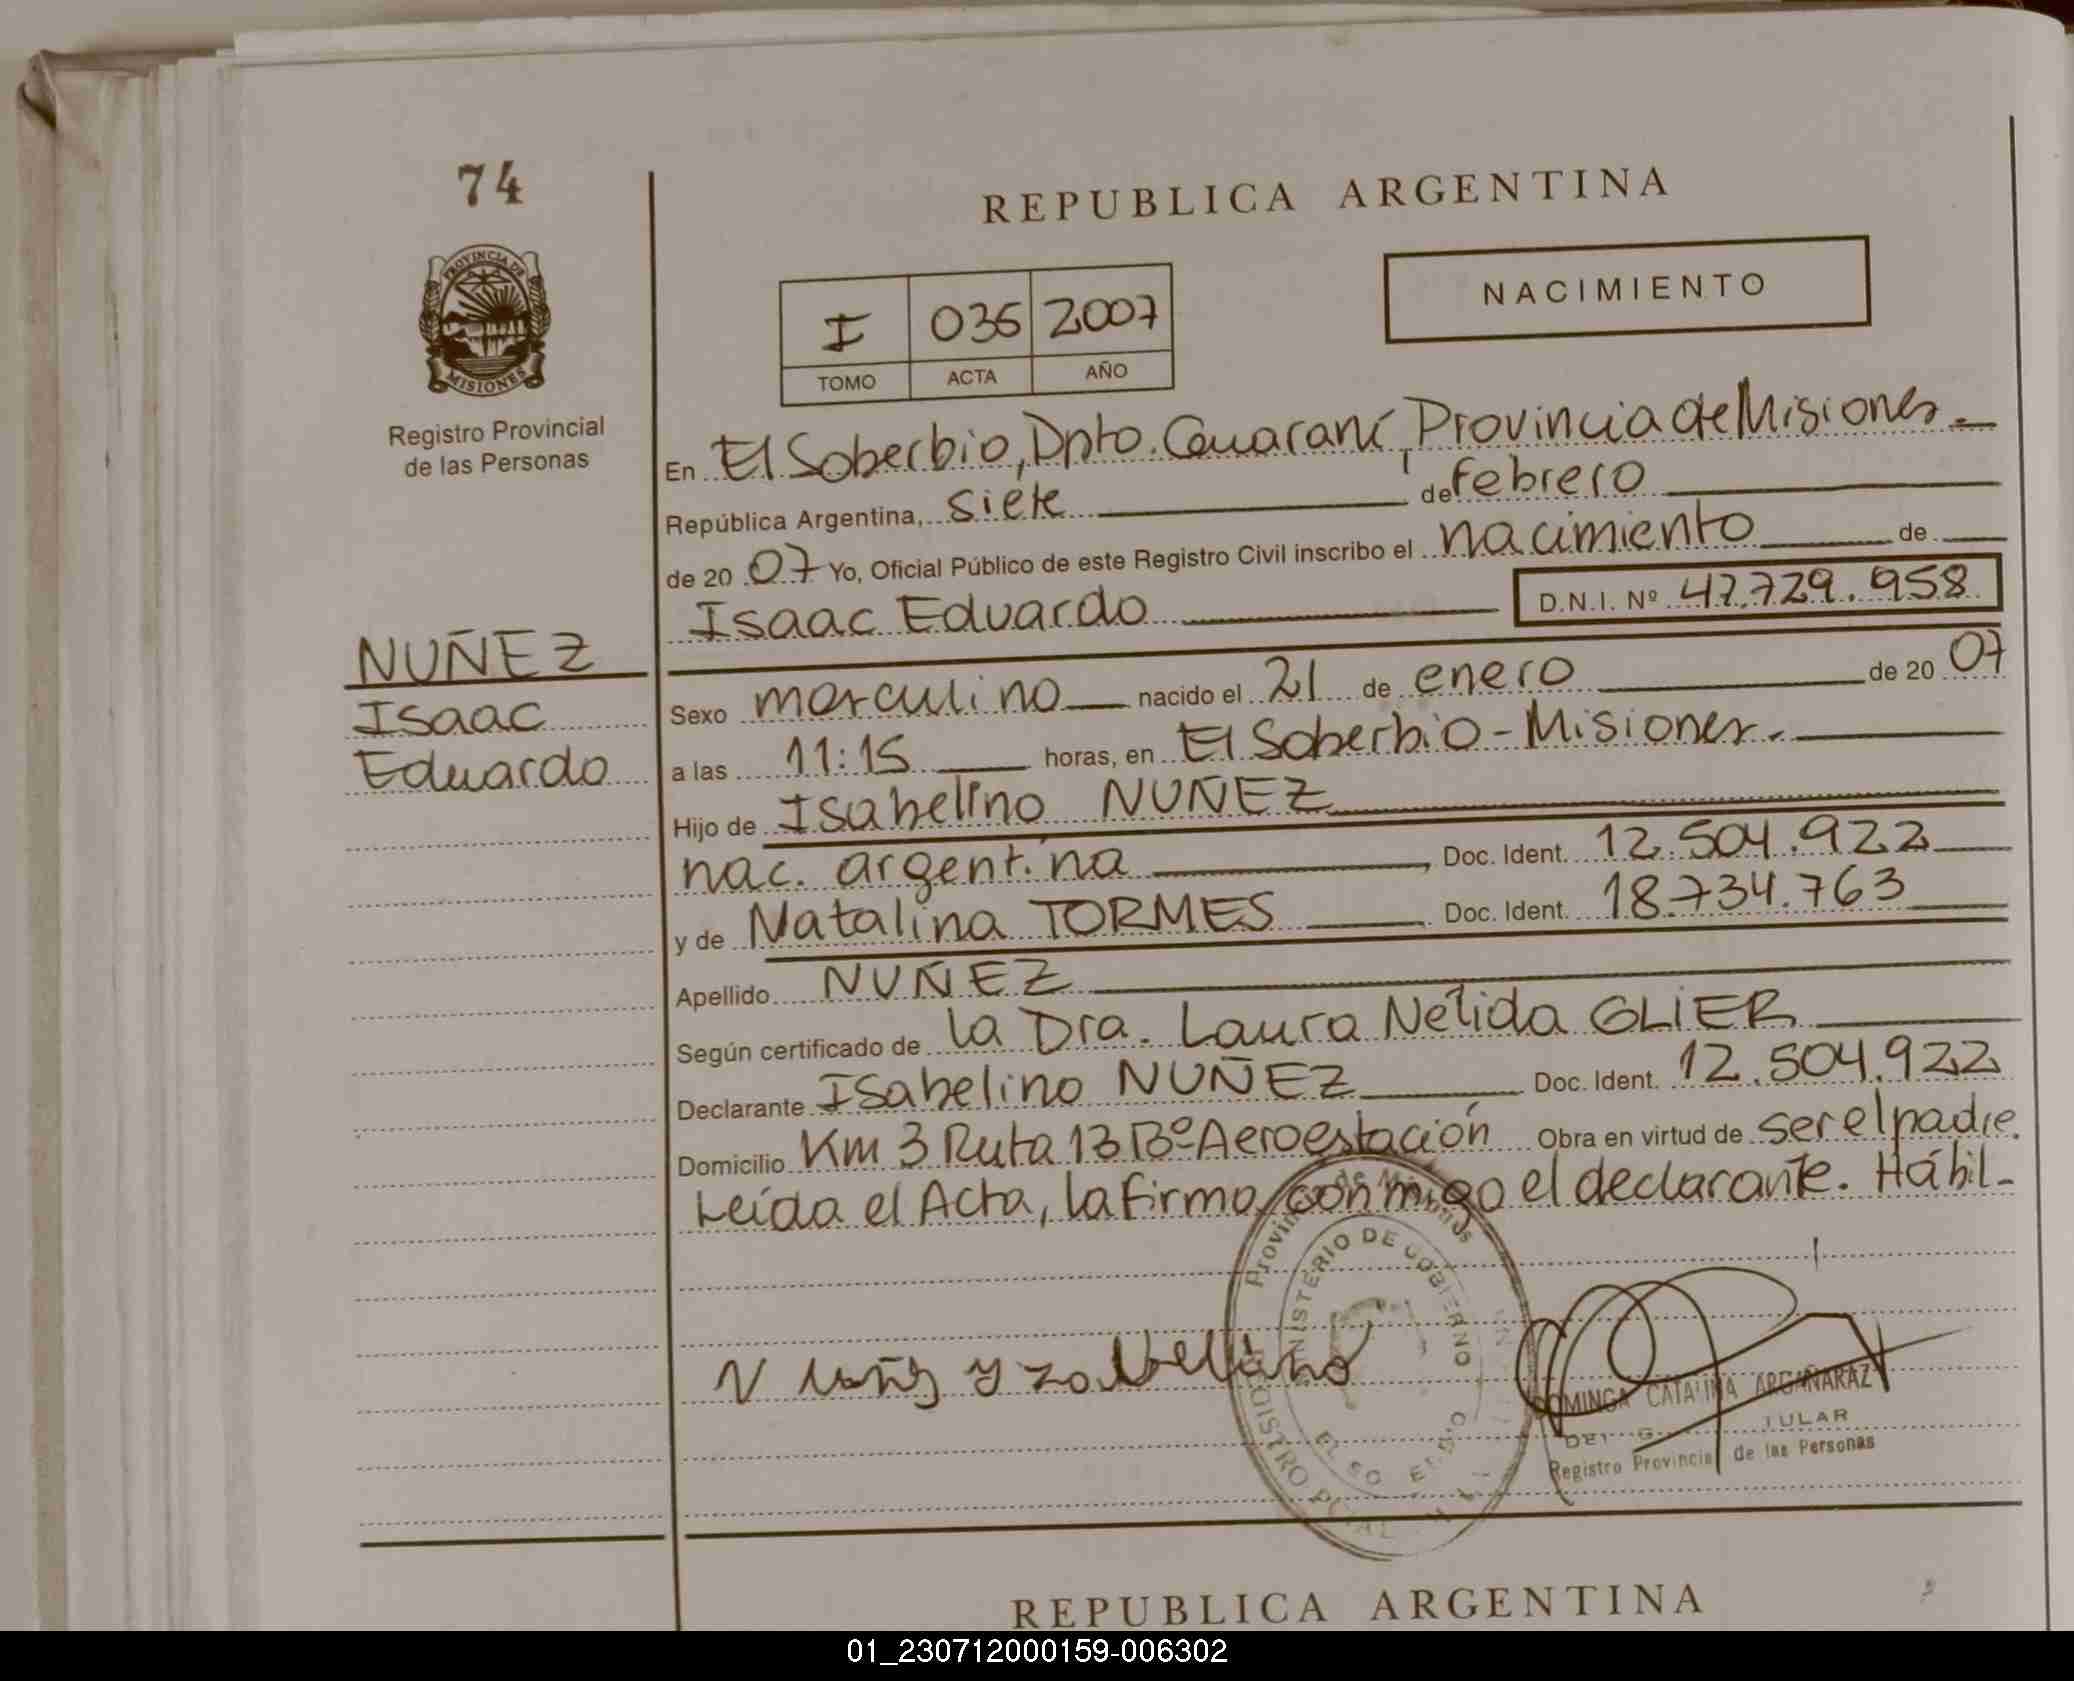 74
REPUBLICA ARGENTINA
PROVINCIA DE
MISIONES
Registro Provincial
de las Personas
NACIMIENTO
I 035 2007
TOMO ACTA AÑO
En El Soberbio, Dpto. Guaraní, Provincia de Misiones.
República Argentina, siete de febrero
de 20 07 Yo, Oficial Público de este Registro Civil inscribo el nacimiento de
Isaac Eduardo D.N.I. Nº 47.729.958
NUÑEZ
Isaac
Eduardo
Sexo masculino nacido el 21 de enero de 20 07
a las 11:15 horas, en El Soberbio - Misiones.
Hijo de Isabelino NUÑEZ
nac. argentina, Doc. Ident. 12.504.922
y de Natalina TORMES Doc. Ident. 18.734.763
Apellido NUÑEZ
Según certificado de la Dra. Laura Nélida GLIER
Declarante Isabelino NUÑEZ Doc. Ident. 12.504.922
Domicilio Km 3 Ruta 13 Bº Aeroestación Obra en virtud de ser el padre.
Leída el Acta, la firma conmigo el declarante. Hábil-
MINISTERIO DE GOBIERNO
CATALINA ARGAÑARAZ
Registro Provincial de las Personas
REPUBLICA ARGENTINA
01_230712000159-006302